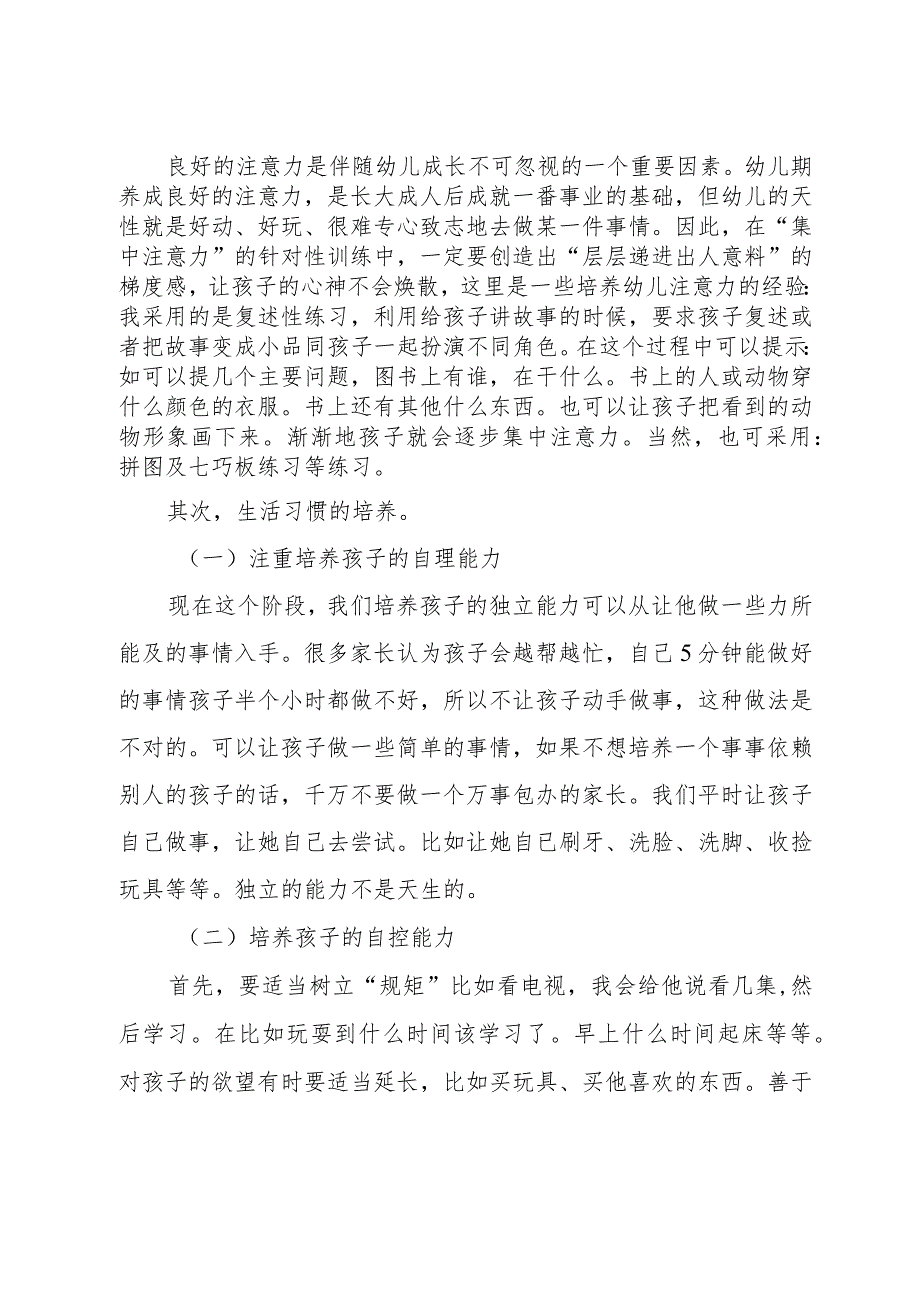 良好的注意力是伴随幼儿成长不可忽视的一个重要因素。幼儿期
养成良好的注意力，是长大成人后成就一番事业的基础，但幼儿的天
性就是好动、好玩、很难专心致志地去做某一件事情。因此，在“集
中注意力”的针对性训练中，一定要创造出“层层递进出人意料”的
梯度感，让孩子的心神不会焕散，这里是一些培养幼儿注意力的经验：
我采用的是复述性练习，利用给孩子讲故事的时候，要求孩子复述或
者把故事变成小品同孩子一起扮演不同角色。在这个过程中可以提示：
如可以提几个主要问题，图书上有谁，在干什么。书上的人或动物穿
什么颜色的衣服。书上还有其他什么东西。也可以让孩子把看到的动
物形象画下来。渐渐地孩子就会逐步集中注意力。当然，也可采用：
拼图及七巧板练习等练习。
其次，生活习惯的培养。
（一）注重培养孩子的自理能力
现在这个阶段，我们培养孩子的独立能力可以从让他做一些力所
能及的事情入手。很多家长认为孩子会越帮越忙，自己5分钟能做好
的事情孩子半个小时都做不好，所以不让孩子动手做事，这种做法是
不对的。可以让孩子做一些简单的事情，如果不想培养一个事事依赖
别人的孩子的话，千万不要做一个万事包办的家长。我们平时让孩子
自己做事，让她自己去尝试。比如让她自已刷牙、洗脸、洗脚、收捡
玩具等等。独立的能力不是天生的。
（二）培养孩子的自控能力
首先，要适当树立“规矩”比如看电视，我会给他说看几集,然
后学习。在比如玩耍到什么时间该学习了。早上什么时间起床等等。
对孩子的欲望有时要适当延长，比如买玩具、买他喜欢的东西。善于